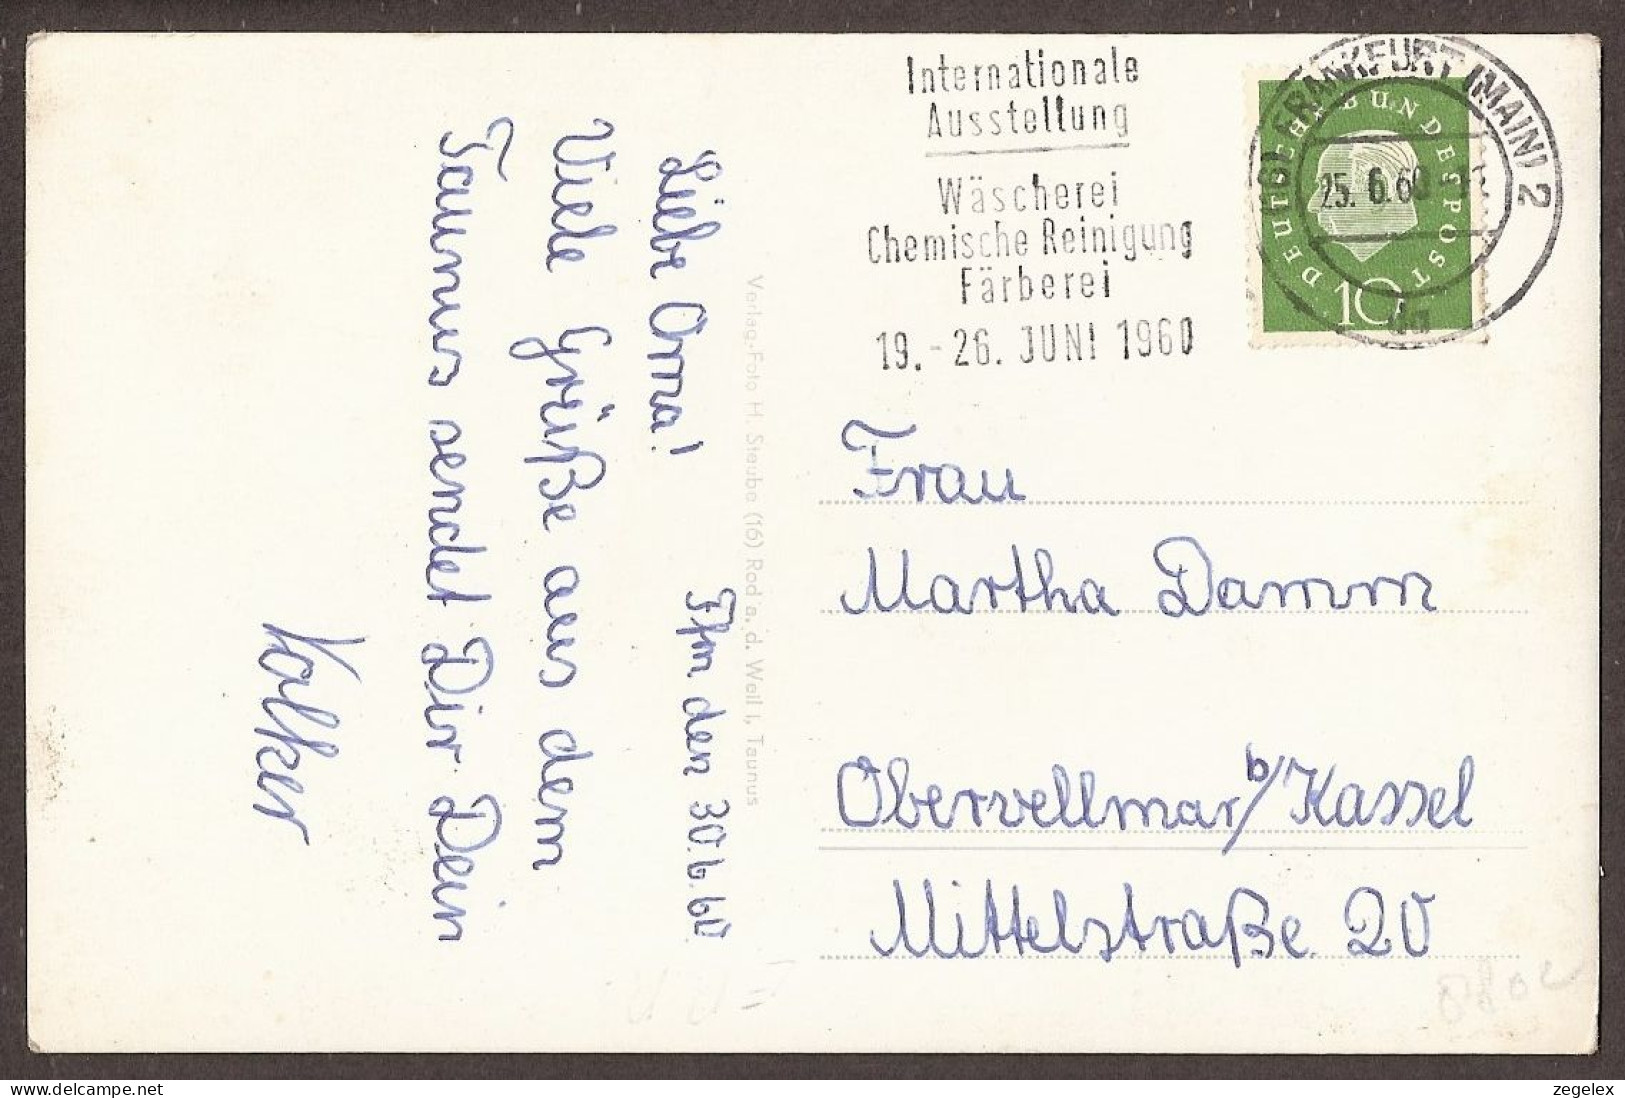 Internationale
Ausstellung
Wäscherei
Chemische Reinigung
Färberei
19.-26. JUNI 1960
(16) FRANKFURT (MAIN) 2
25. 6. 60
da
DEUTSCHE BUNDESPOST
10
Ffm den 30.6.60
Liebe Oma!
Viele Grüße aus dem
Taunus sendet Dir Dein
Volker
Verlag-Foto H. Steube (16) Rod a. d. Weil i, Taunus
Frau
Martha Damm
Obervellmar b/Kassel
Mittelstraße 20
zegelex